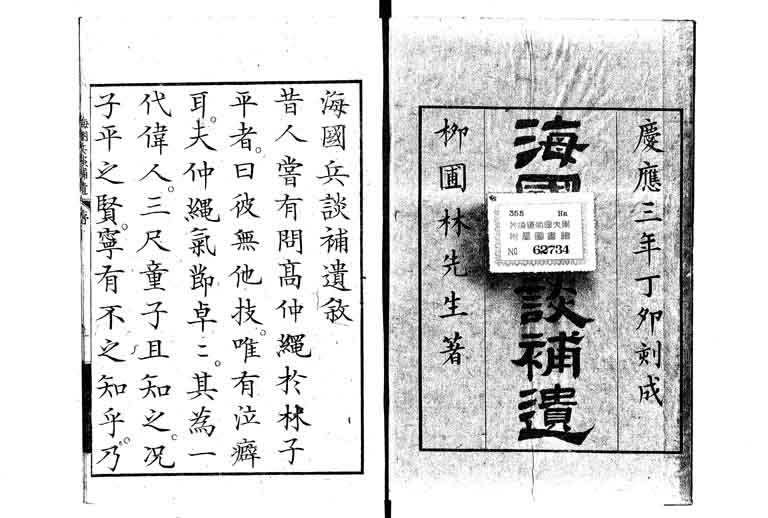 慶應三年丁卯刻成
海國
談補遺
柳圃林先生著
358 Ha
附屬圖書館
No 62734
海國兵談補遺敘
昔人嘗有問高仲繩於林子
平者。曰彼無他技。唯有泣癖
耳。夫仲繩氣節卓〻。其為一
代偉人。三尺童子且知之。況
子平之賢。寧有不之知乎。乃
海國兵談補遺